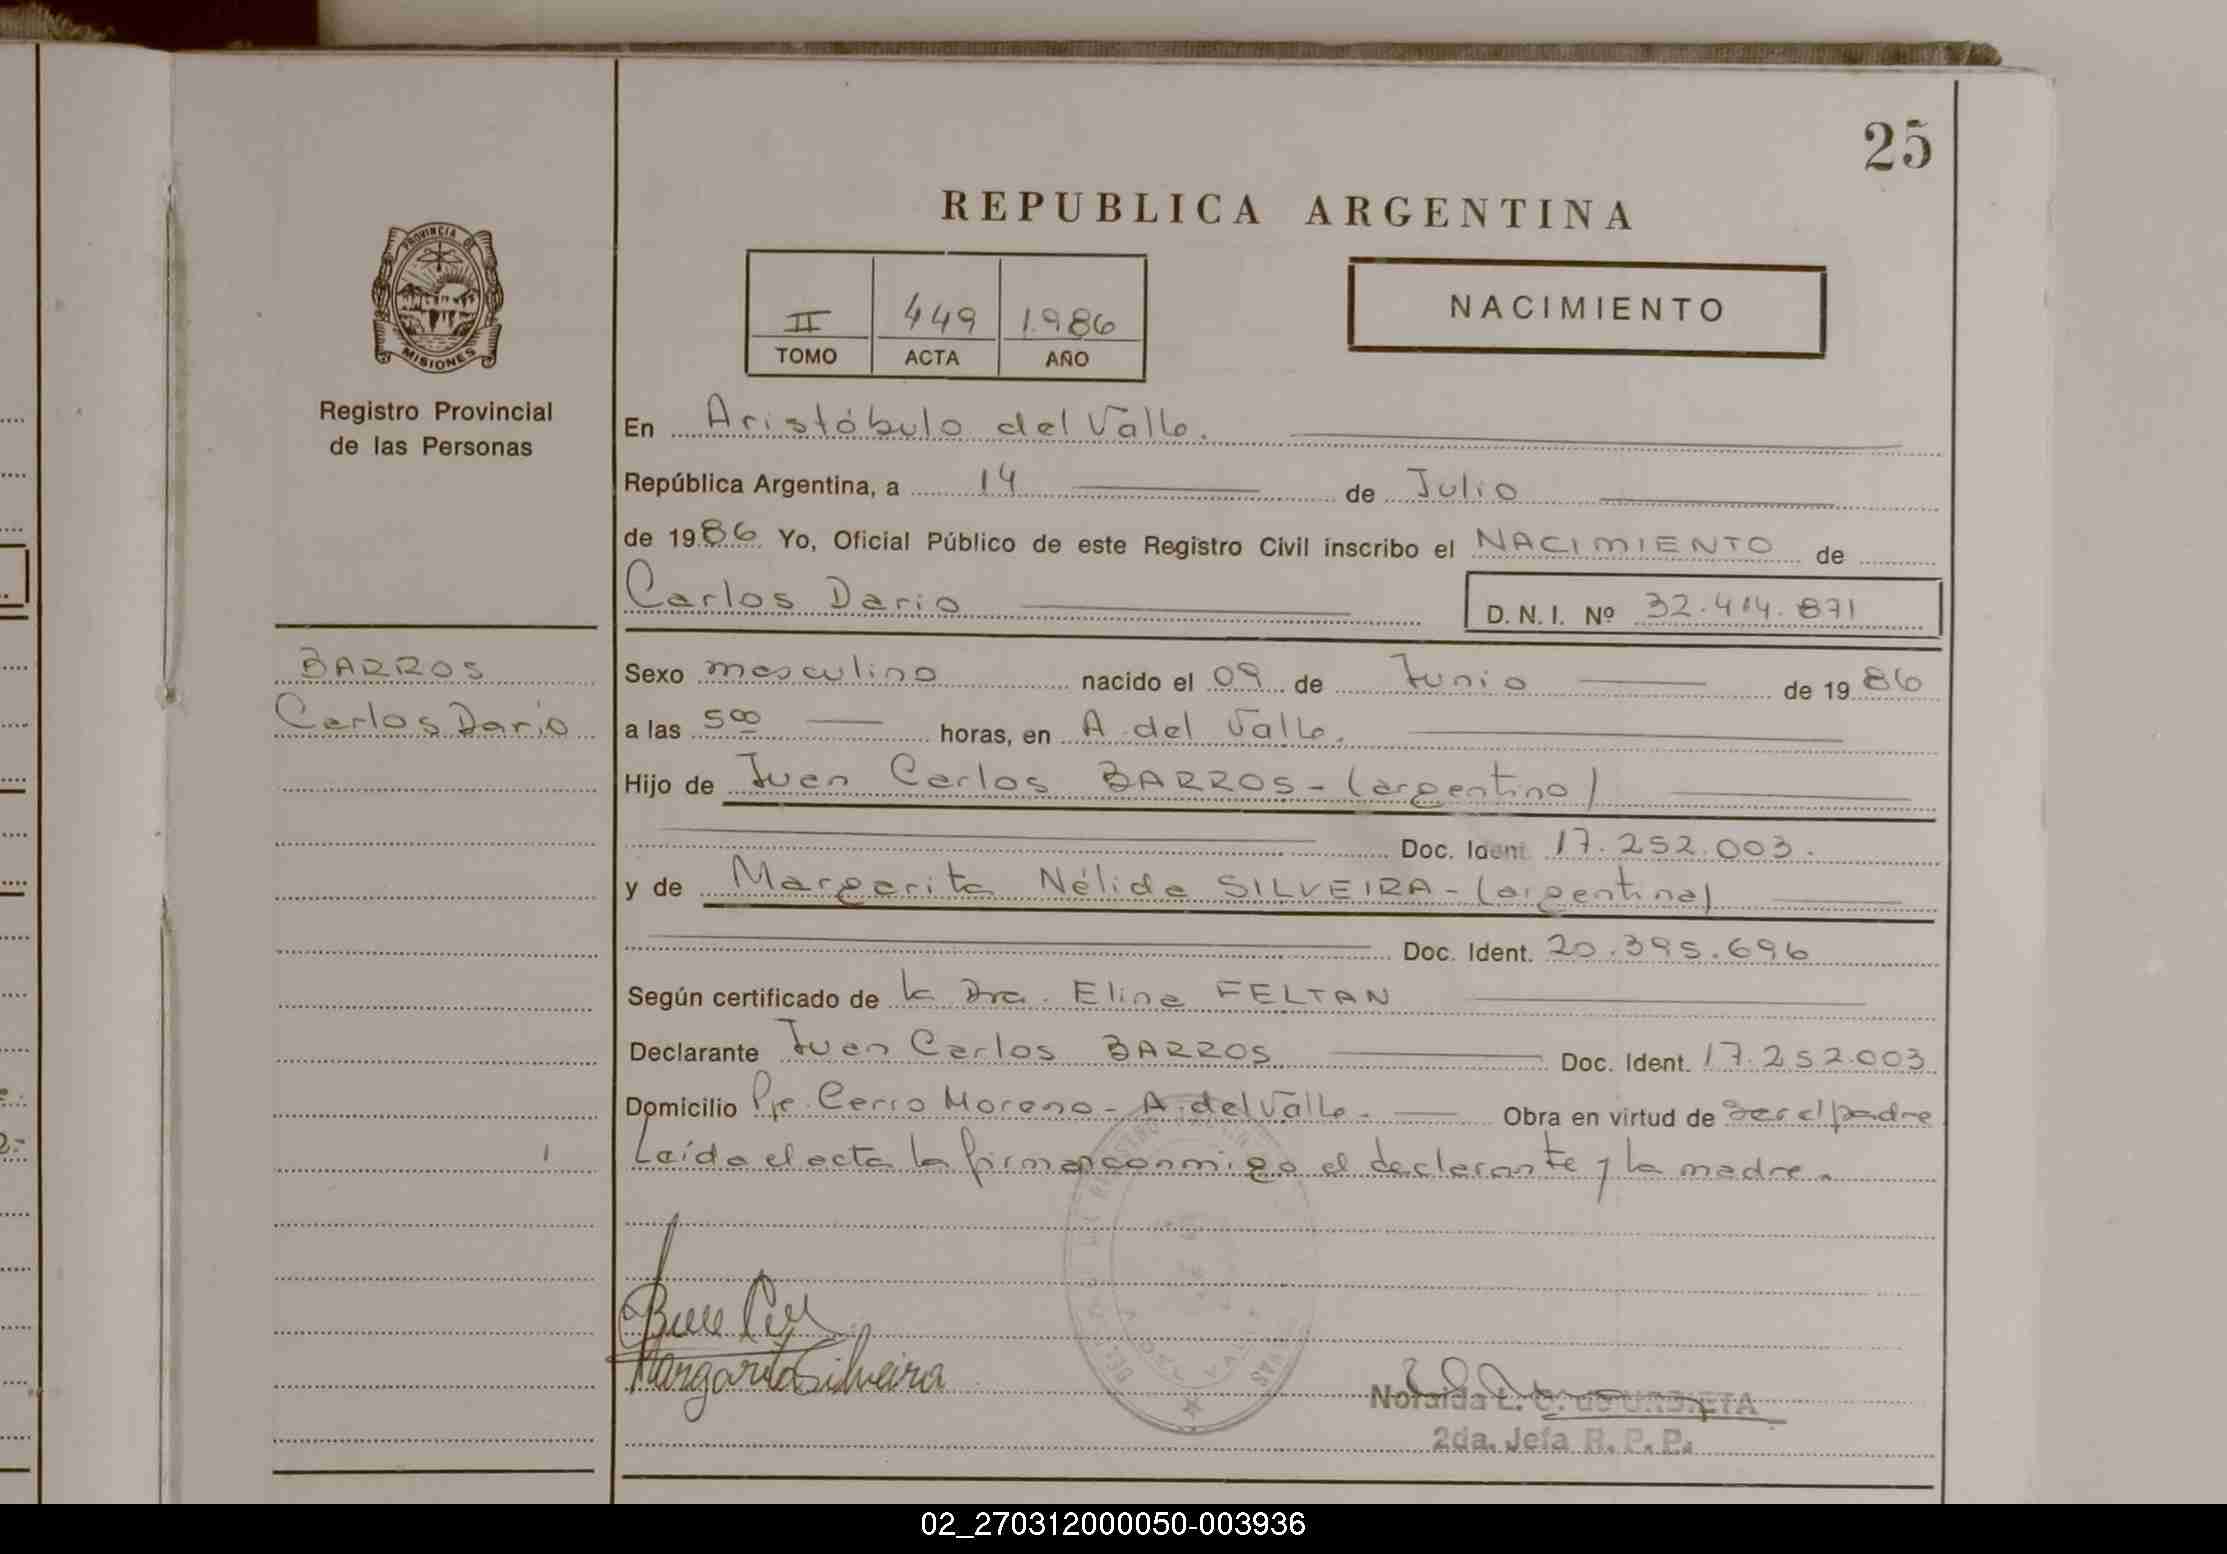 25
REPUBLICA ARGENTINA
PROVINCIA DE
MISIONES
Registro Provincial
de las Personas
II 449 1986
TOMO ACTA AÑO
NACIMIENTO
En Aristóbulo del Valle.
República Argentina, a 14 de Julio
de 1986 Yo, Oficial Público de este Registro Civil inscribo el NACIMIENTO de
Carlos Dario D. N. I. Nº 32.414.871
BARROS
Carlos Dario
Sexo masculino nacido el 09 de Junio de 1986
a las 5 00 horas, en A. del Valle.
Hijo de Juan Carlos BARROS - (argentino)
Doc. Ident. 17.252.003.
y de Margarita Nélida SILVEIRA - (argentina)
Doc. Ident. 20.395.696
Según certificado de la Dra. Elina FELTAN
Declarante Juan Carlos BARROS Doc. Ident. 17.252.003
Domicilio Pje. Cerro Moreno - A. del Valle - Obra en virtud de ser el padre
Leída el acta la firman conmigo el declarante y la madre.
Margarita Silveira
Noraida L. de URBIETA
2da. Jefa R. P. P.
02_270312000050-003936